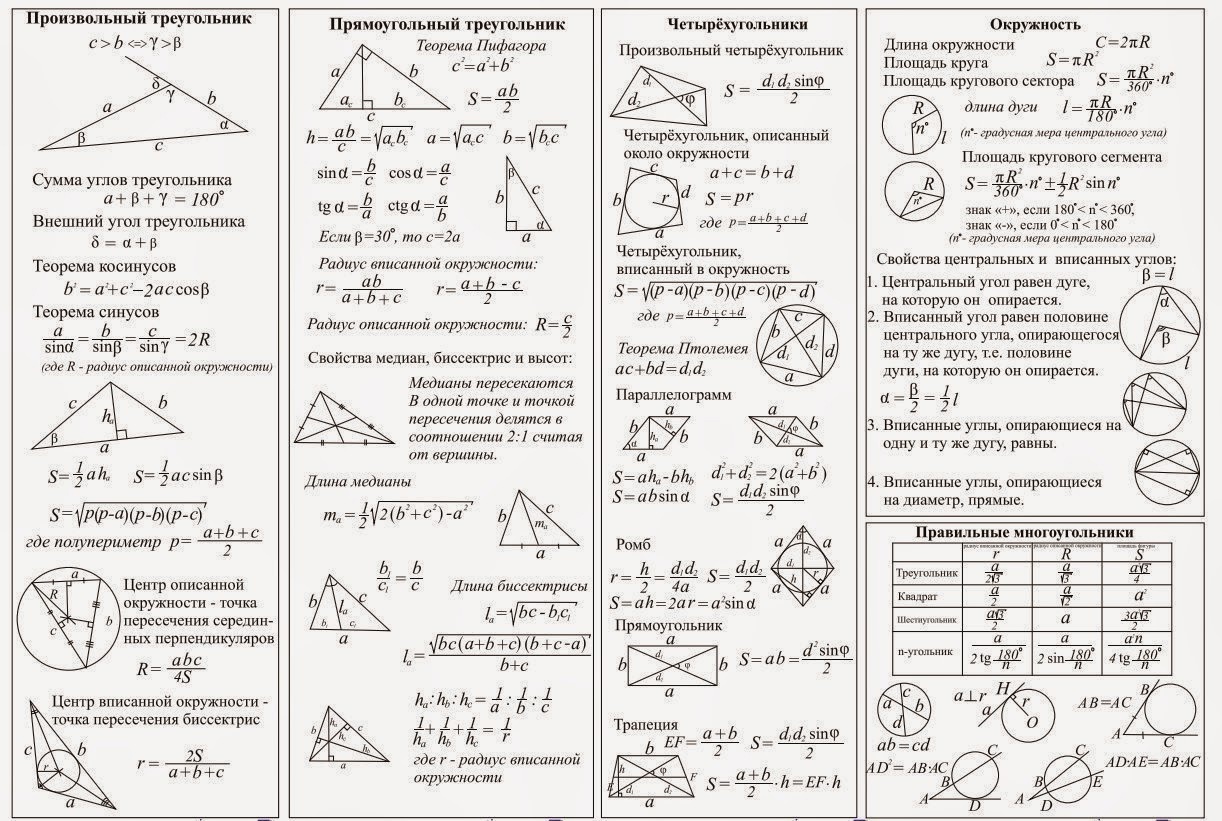 Произвольный треугольник
c > b ⟺ γ > β
δ
γ
a
b
β
α
c
Сумма углов треугольника
a + β + γ = 180°
Внешний угол треугольника
δ = α + β
Теорема косинусов
b² = a² + c² − 2ac cosβ
Теорема синусов
a/sinα = b/sinβ = c/sinγ = 2R
(где R - радиус описанной окружности)
c
hₐ
b
β
a
S = 1/2 ahₐ S = 1/2 ac sinβ
S = √(p(p-a)(p-b)(p-c))
где полупериметр p = (a+b+c)/2
a
R
b
c
Центр описанной
окружности - точка
пересечения середин-
ных перпендикуляров
R = abc/4S
Центр вписанной окружности -
точка пересечения биссектрис
c
b
r
a
r = 2S/(a+b+c)
Прямоугольный треугольник
Теорема Пифагора
c² = a² + b²
a
b
a_c
b_c
c
S = ab/2
h = ab/c = √(a_c b_c) a = √(a_c c) b = √(b_c c)
sinα = b/c cosα = a/c
tgα = b/a ctgα = a/b
β
b
c
α
a
Если β=30°, то c=2a
Радиус вписанной окружности:
r = ab/(a+b+c) r = (a+b-c)/2
Радиус описанной окружности: R = c/2
Свойства медиан, биссектрис и высот:
Медианы пересекаются
В одной точке и точкой
пересечения делятся в
соотношении 2:1 считая
от вершины.
Длина медианы
mₐ = 1/2 √(2(b²+c²)-a²)
b
c
mₐ
a
b
c
lₐ
b₁
c₁
a
b₁/c₁ = b/c
Длина биссектрисы
lₐ = √(bc - b₁c₁)
lₐ = √(bc(a+b+c)(b+c-a))/(b+c)
hₐ : h_b : h_c = 1/a : 1/b : 1/c
1/hₐ + 1/h_b + 1/h_c = 1/r
где r - радиус вписанной
окружности
b
hₐ
c
h_c
h_b
a
Четырёхугольники
Произвольный четырёхугольник
d₁
d₂
φ
S = d₁d₂ sinφ/2
Четырёхугольник, описанный
около окружности
c
b
d
r
a
a + c = b + d
S = pr
где p = (a+b+c+d)/2
Четырёхугольник,
вписанный в окружность
S = √((p-a)(p-b)(p-c)(p-d))
где p = (a+b+c+d)/2
Теорема Птолемея
ac + bd = d₁d₂
c
b
d₂
d₁
d
a
Параллелограмм
a
b
hₐ
h_b
b
α
a
a
b
φ
b
a
S = ahₐ - bh_b d₁² + d₂² = 2(a² + b²)
S = ab sinα S = d₁d₂ sinφ/2
Ромб
r = h/2 = d₁d₂/4a S = d₁d₂/2
S = ah = 2ar = a² sinα
a
α
a
d₂
d₁
h
r
a
a
Прямоугольник
a
b
d₁
φ
b
a
S = ab = d² sinφ/2
Трапеция
EF = (a+b)/2 S = d₁d₂ sinφ/2
b
h
φ
E
F
d₁
d₂
a
S = (a+b)/2 · h = EF · h
Окружность
Длина окружности C = 2πR
Площадь круга S = πR²
Площадь кругового сектора S = πR²/360° · n°
R
n°
l
длина дуги l = πR/180° · n°
(n°- градусная мера центрального угла)
Площадь кругового сегмента
R
n°
S = πR²/360° · n° ± 1/2 R² sin n°
знак «+», если 180° < n° < 360°,
знак «-», если 0° < n° < 180°
(n°- градусная мера центрального угла)
Свойства центральных и вписанных углов:
β = l
1. Центральный угол равен дуге,
на которую он опирается.
2. Вписанный угол равен половине
центрального угла, опирающегося
на ту же дугу, т.е. половине
дуги, на которую он опирается.
α = β/2 = 1/2 l
α
β
l
3. Вписанные углы, опирающиеся на
одну и ту же дугу, равны.
4. Вписанные углы, опирающиеся
на диаметр, прямые.
Правильные многоугольники
радиус вписанной окружности радиус описанной окружности площадь фигуры
r R S
Треугольник a/2√3 a/√3 a²√3/4
Квадрат a/2 a/√2 a²
Шестиугольник a√3/2 a 3a²√3/2
n-угольник a/(2 tg 180°/n) a/(2 sin 180°/n) a²n/(4 tg 180°/n)
c
a
b
d
ab = cd
a⊥r
H
r
a
O
AB=AC
B
A
C
AD² = AB·AC
C
B
A
D
C
B
E
A
D
AD·AE = AB·AC